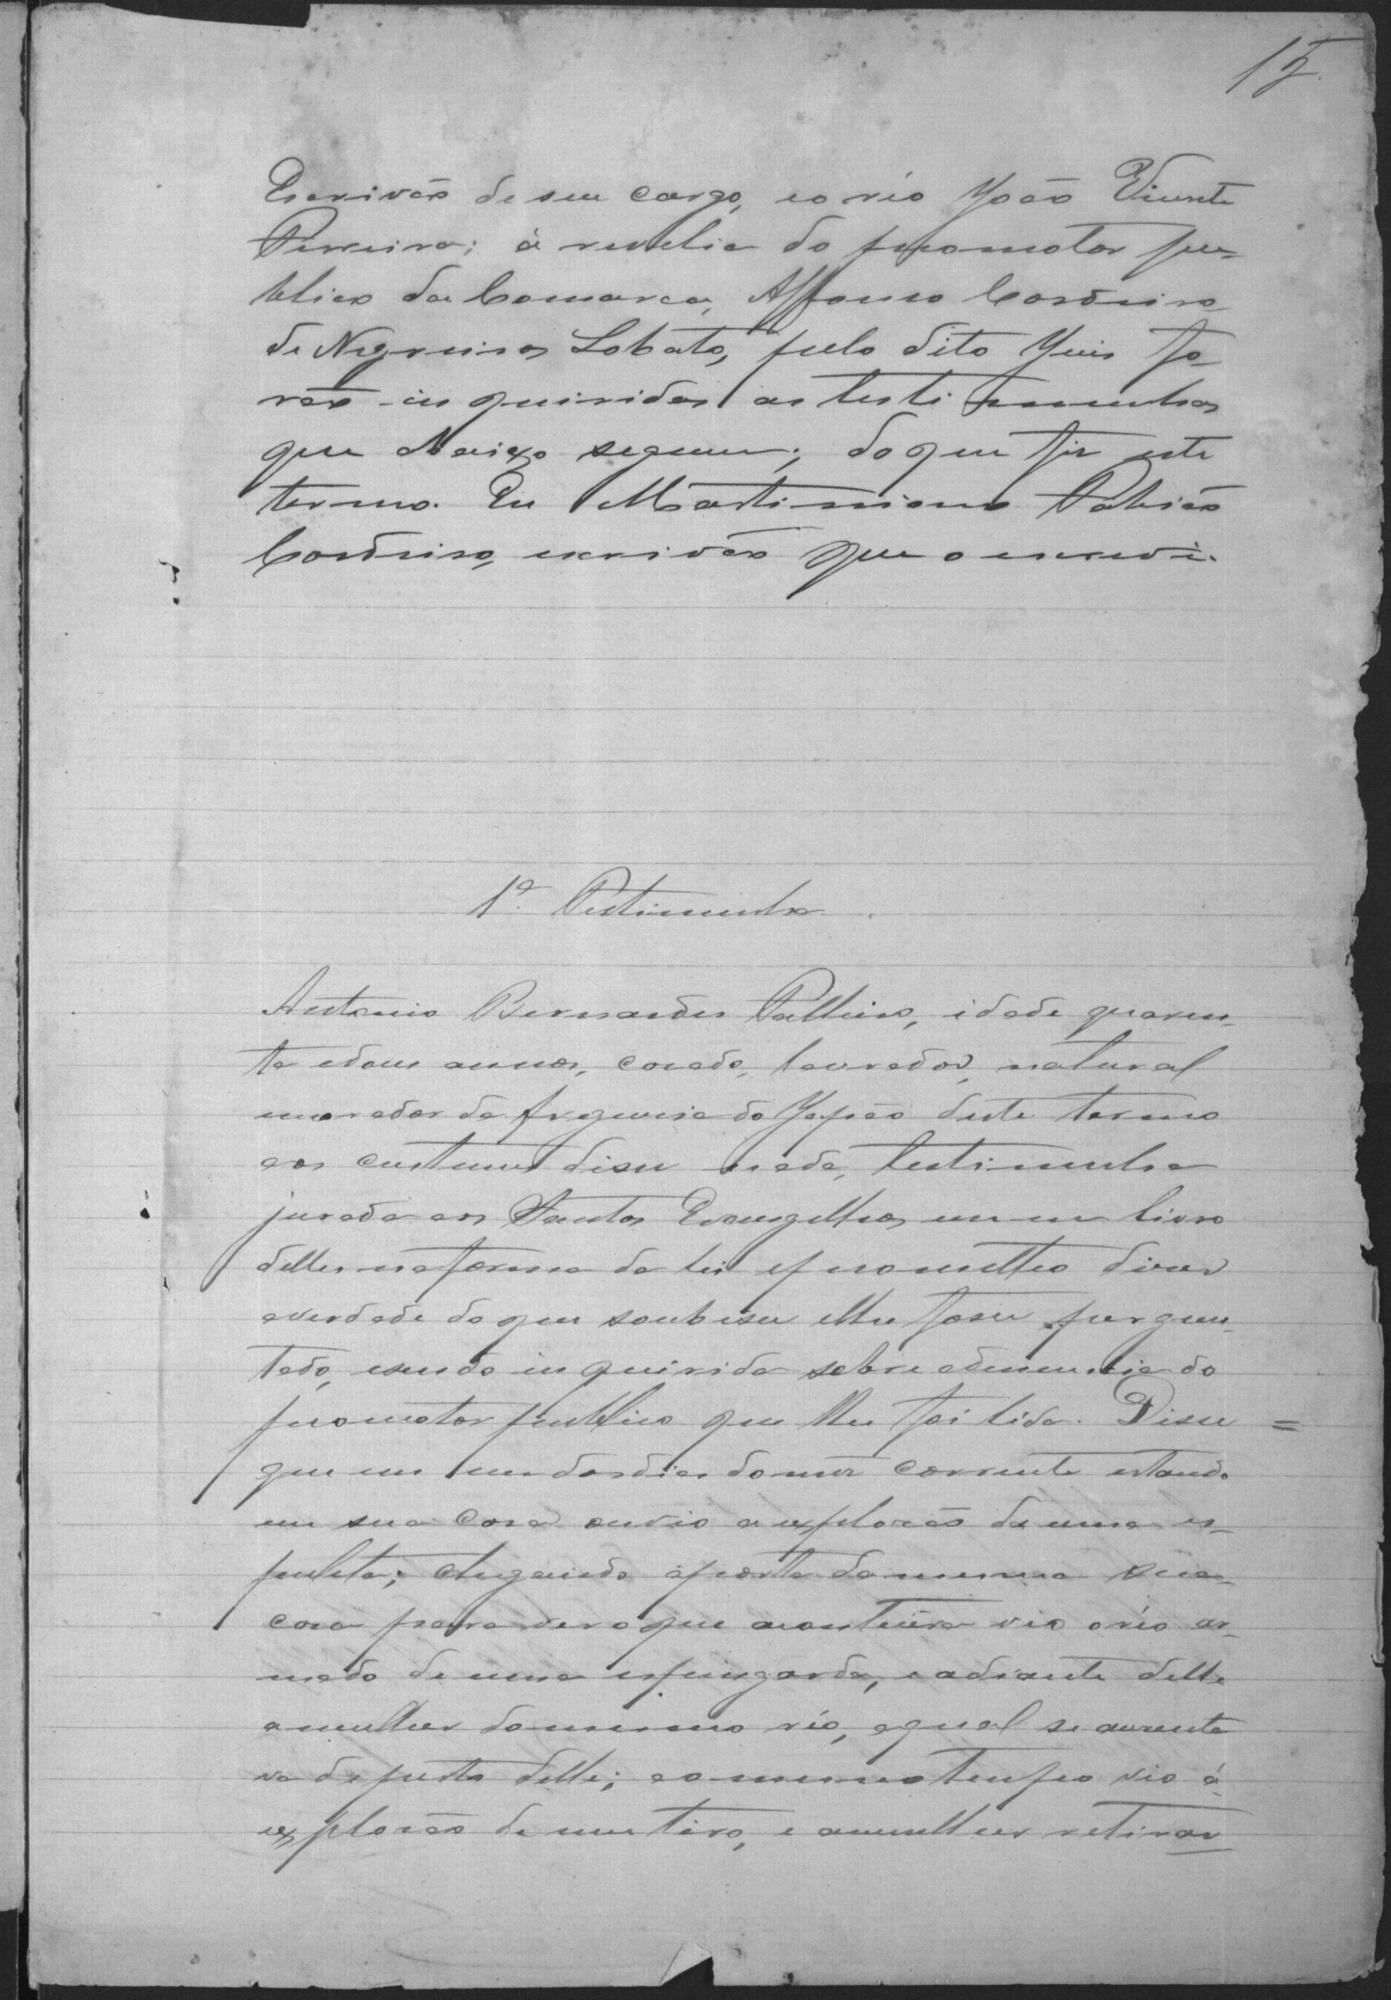 15
Escrivão de seu cargo, e o réo João Vicente
Pereira; á revelia do promotor pu-
blico da Comarca, Affonso Cordeiro
de Negreiros Lobato, pelo dito Juis fo-
rão inquiridas as testimunhas
que abaixo seguem; do que fis este
termo. Eu Martiniano Cordeiro, escrivão que o escrevi.
1ª Testimunha
Antonio Bernardes, idade quaren-
ta e dous annos, casado, lavrador, natural
morador da Freguesia do Japão deste termo
aos custumes disse nada, testimunha
jurada aos Santos Evangelhos em um livro
delles na forma da lei e prometteo diser
a verdade do que soubesse e lhe fosse pergun-
tado, e sendo inquirida sobre a denuncia do
promotor publico que lhe foi lida. Disse =
que em um dos dias do mez corrente estando
em sua casa ouvio a explosão de uma es-
puleta; chegando á porta da mesma sua
casa para ver o que acontecera vio o réo ar-
mado de uma espingarda, e adiante delle
a mulher do mesmo réo, a qual se ausenta
va de perto delle; e ao mesmo tempo vio á
explosão de um tiro, e a mulher retirar